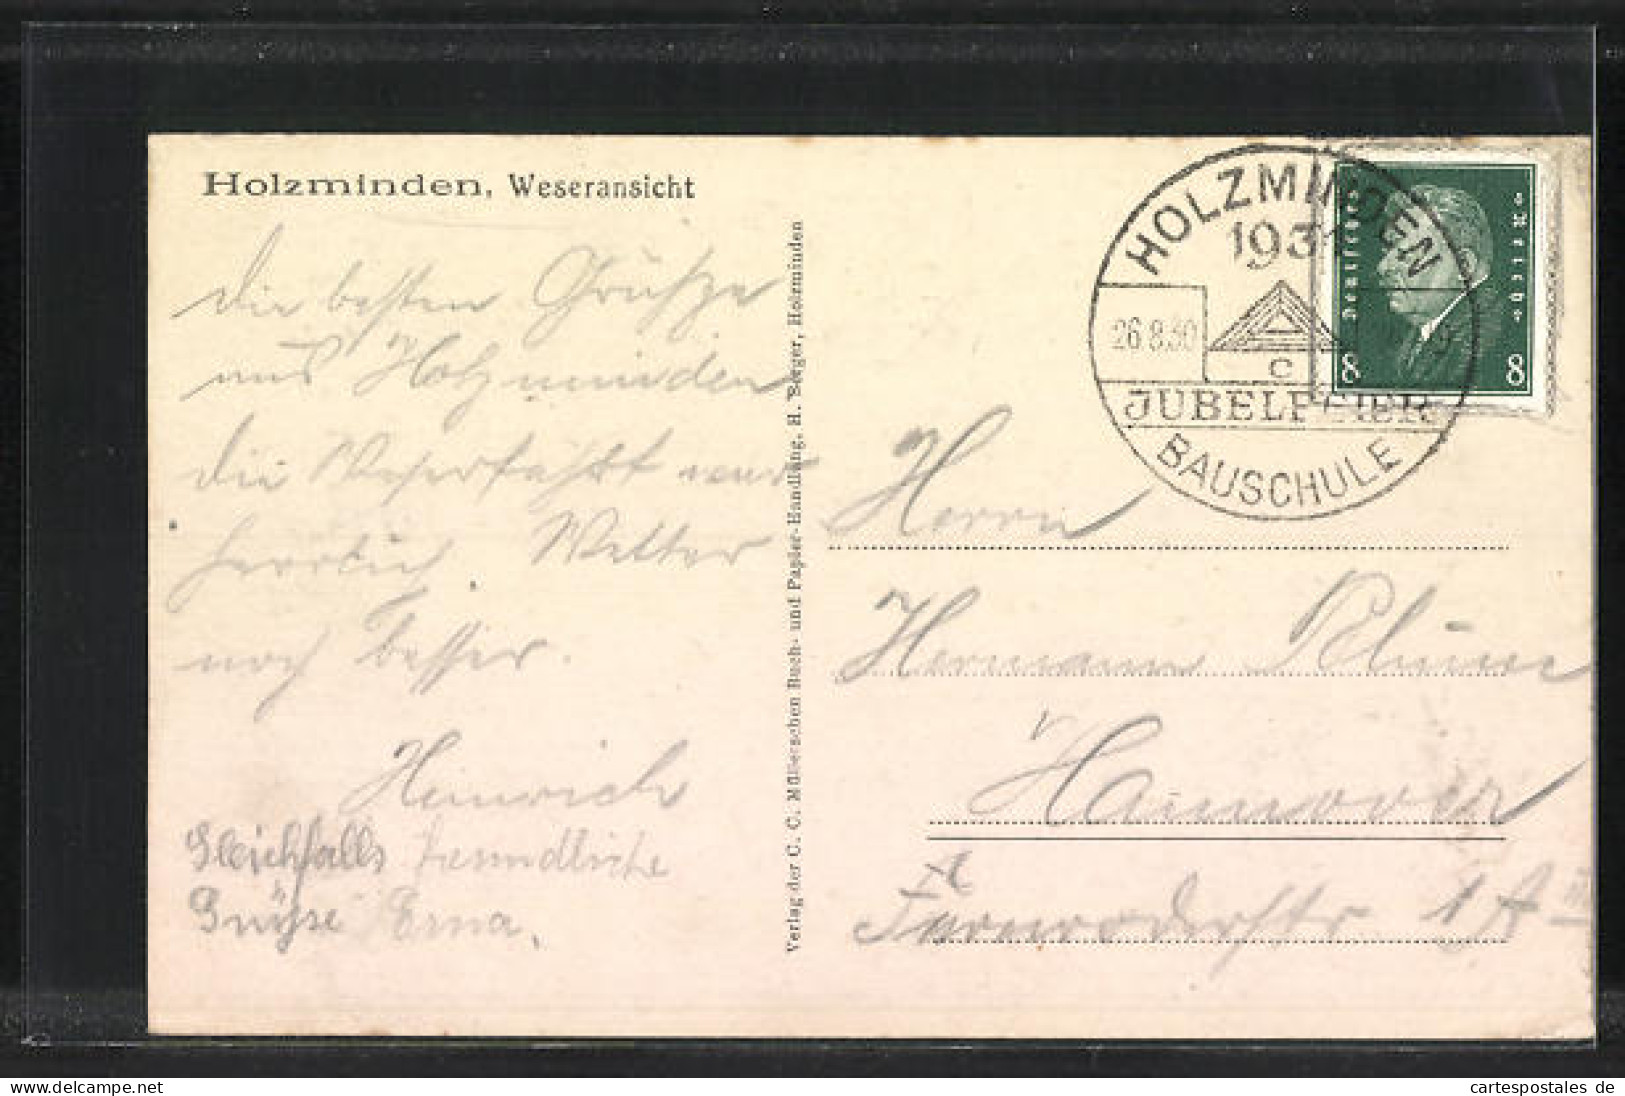 Holzminden, Weseransicht
die besten Grüße
aus Holzminden
die Weserfahrt war
herrlich. Wetter
noch besser.
Heinrich
Gleichfalls freundliche
Grüsse Erna.
Verlag der C. C. Müllerschen Buch- und Papier-Handlung, H. Berger, Holzminden
HOLZMINDEN
1931
26.8.30
C
JUBELFEIER
BAUSCHULE
Deutsches Reich
8 8
Herrn
Hermann Blume
Hannover
1 A III
cartespostales de